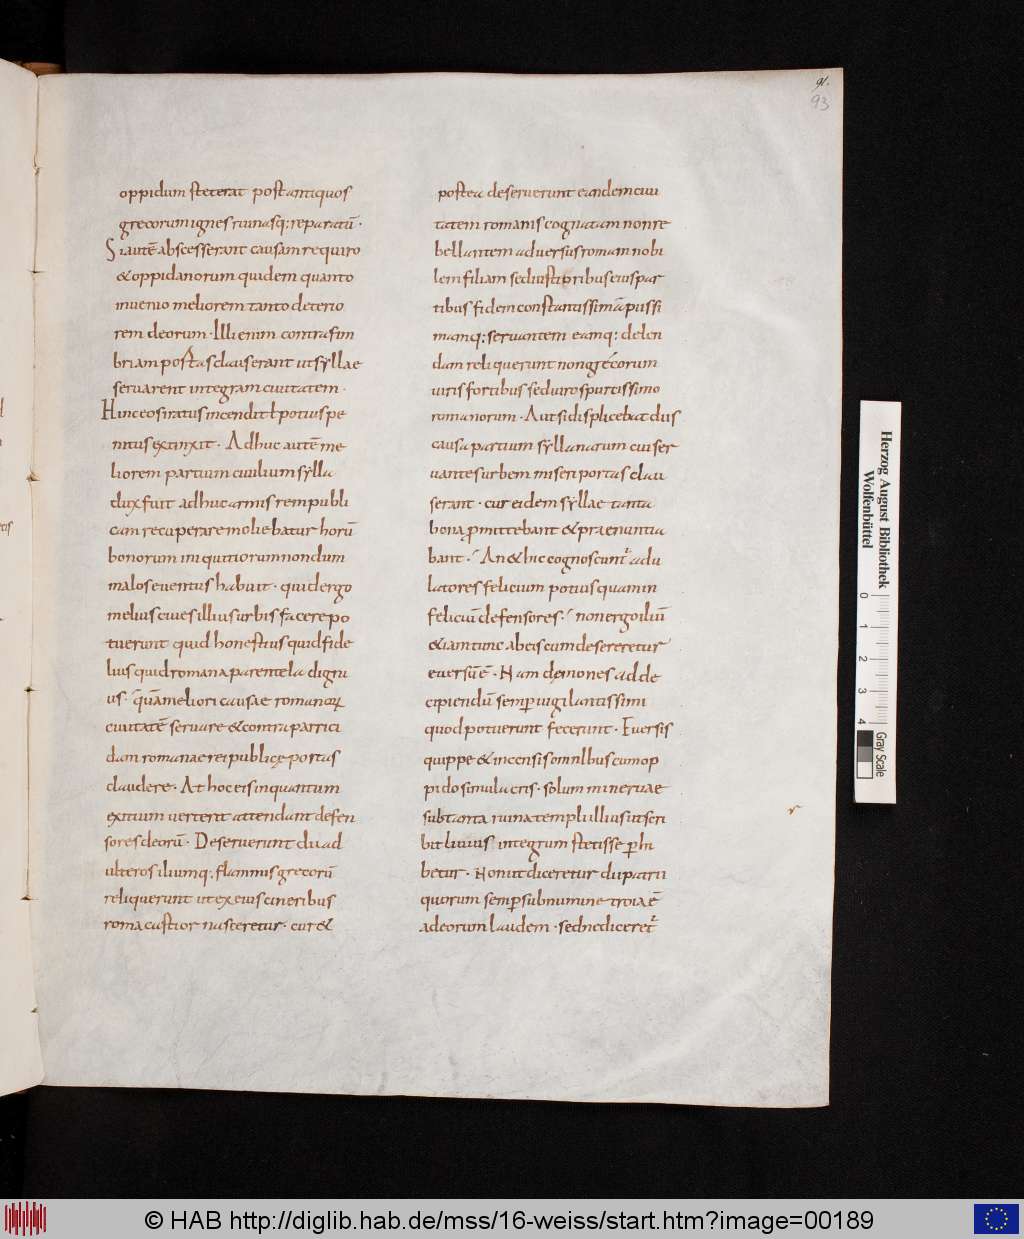 91.
93
oppidum steterat post antiquos
grecorum ignes ruinasq; reparatū ·
Si autē abscesserant causam requiro
& oppidanorum quidem quanto
invenio meliorem tanto deterio
rem deorum · Illi enim contra fim
briam portas clauserant ut syllae
servarent integram civitatem ·
Hinc eos iratus incendit ł potius pe
nitus extinxit · Adhuc autē me
liorem partium civilium sylla
dux fuit adhuc armis rem publi
cam recuperare moliebatur horū
bonorum initiorum nondum
malos eventus habuit · quid ergo
melius cives illius urbis facere po
tuerunt quid honestius quid fide
lius quid romana parentela digni
us · quā meliori causae romanoꝝ
civitatē servare & contra parrici
dam romanae rei publicę portas
claudere · At hoc eis in quantum
exitium verterit attendant defen
sores deorū · Deseruerunt dii ad
ulteros iliumq; flammis grecorū
reliquerunt ut ex eius cineribus
roma castior nasceretur · cur &
postea deseruerunt eandem civi
tatem romanis cognatam non re
bellantem adversus romam nobi
lem filiam sed iustioribus eius par
tibus fidem constantissimā piissi
mamq; servantem eamq; delen
dam reliquerunt non grecorum
viris fortibus sed viro spurcissimo
romanorum · Aut si displicebat diis
causa partium syllanarum cui ser
vantes urbem miseri portas clau
serant · cur eidem syllae tanta
bona ꝓmittebant & praenuntia
bant · An & hic cognoscunt᷑ adu
latores felicium potius quam in
feliciū defensores · non ergo iliū
& iam tunc ab eis cum desereretur
eversū ē · Nam demones ad de
cipiendū semꝑ vigilantissimi
quod potuerunt fecerunt · Eversis
quippe & incensis omnibus cum op
pido simulacris · solum minervae
sub tanta ruina templi illius ut scri
bit livius integrum stetisse ꝑhi
betur · Non ut diceretur dii patrii
quorum semꝑ sub numine troia ē
ad eorum laudem · sed ne diceret᷑
Herzog August Bibliothek
Wolfenbüttel
0
1
2
3
4
Gray Scale
© HAB http://diglib.hab.de/mss/16-weiss/start.htm?image=00189